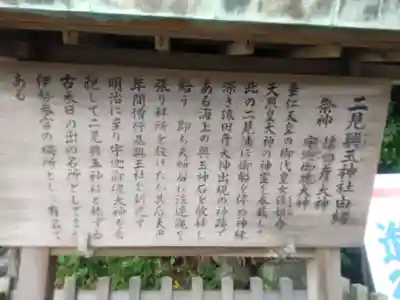 二見興玉神社由緒
祭神 猿田彦大神
宇迦御魂大神
垂仁天皇の御代皇女倭姫命
天照皇大神の神霊を奉戴して
此の二見浦に御船を停め神縁
深き猿田彦大神出現の神跡で
ある海上の興玉神石を敬拝し
給う 即ち夫婦岩に注連縄を
張り拝所を設けたが其后天平
年間僧行基興玉社を創建て
明治に至り宇迦御魂大神を合
祀して二見興玉神社と称す
古来日の出の名所として
伊勢参宮の 場所として有名で
ある